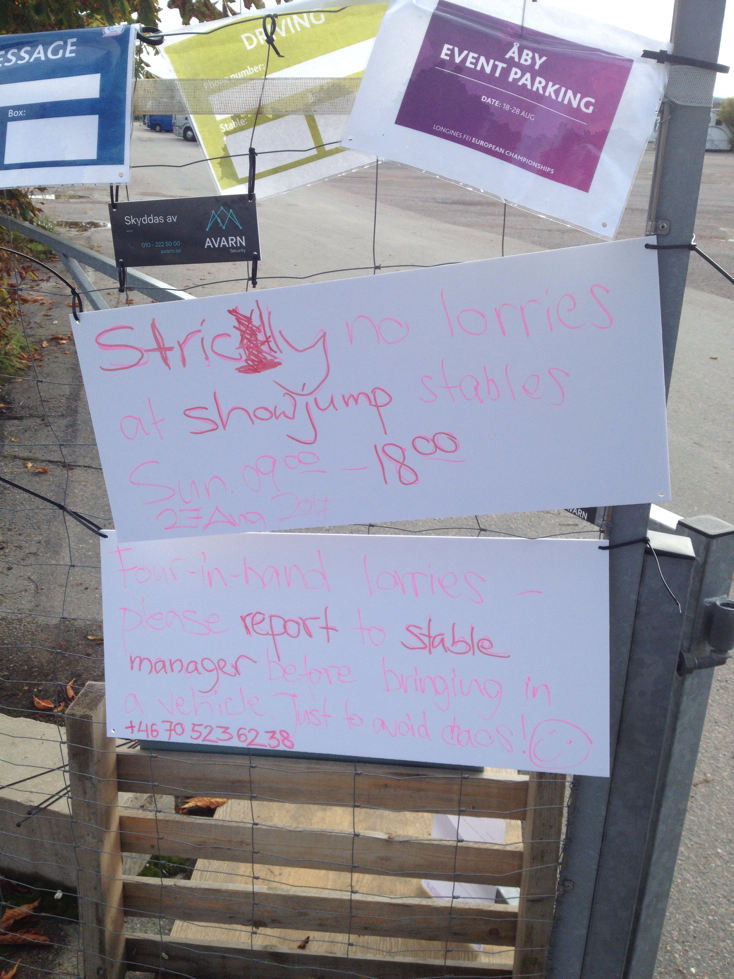 ESSAGE
Box:
DRIVING
number:
Stable:
ÅBY
EVENT PARKING
DATE: 18-28 AUG
LONGINES FEI EUROPEAN CHAMPIONSHIPS
Skyddas av
010 - 222 60 00
avarn.se
AVARN
Security
Strictly no lorries
at showjump stables
Sun. 09⁰⁰ – 18⁰⁰
27 Aug 2017
Four-in-hand lorries –
please report to stable
manager before bringing in
a vehicle. Just to avoid chaos!
+46 70 523 62 38
AVARN